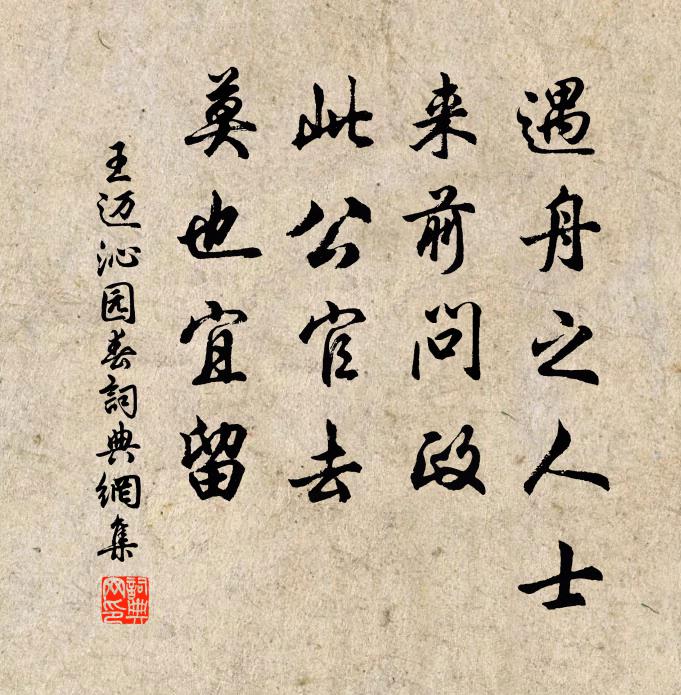 遇舟之人士
来前问政
此公官去
莫也宜留
王迈沁园春詞典網集
詞典网印